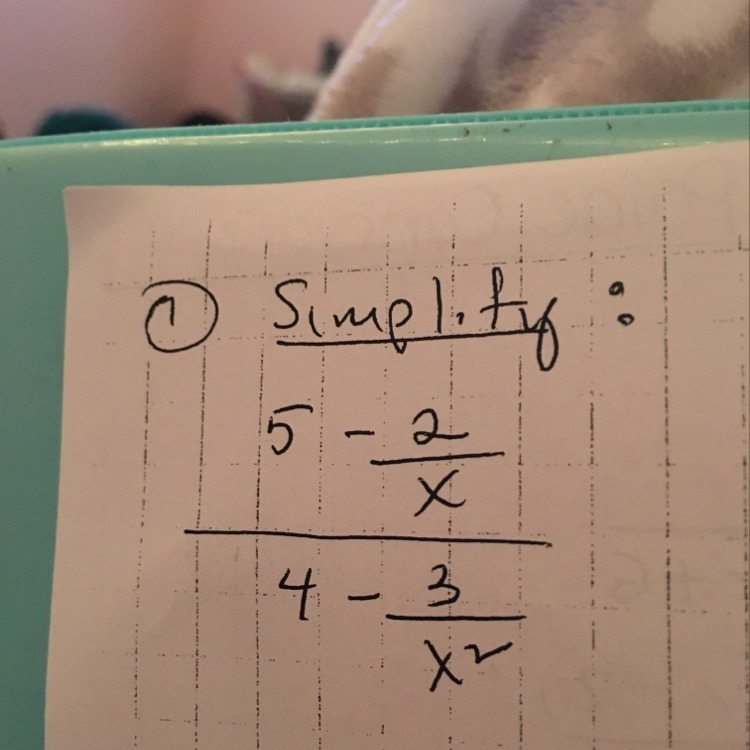 ① Simplify:
5 - 2/x
4 - 3/x²